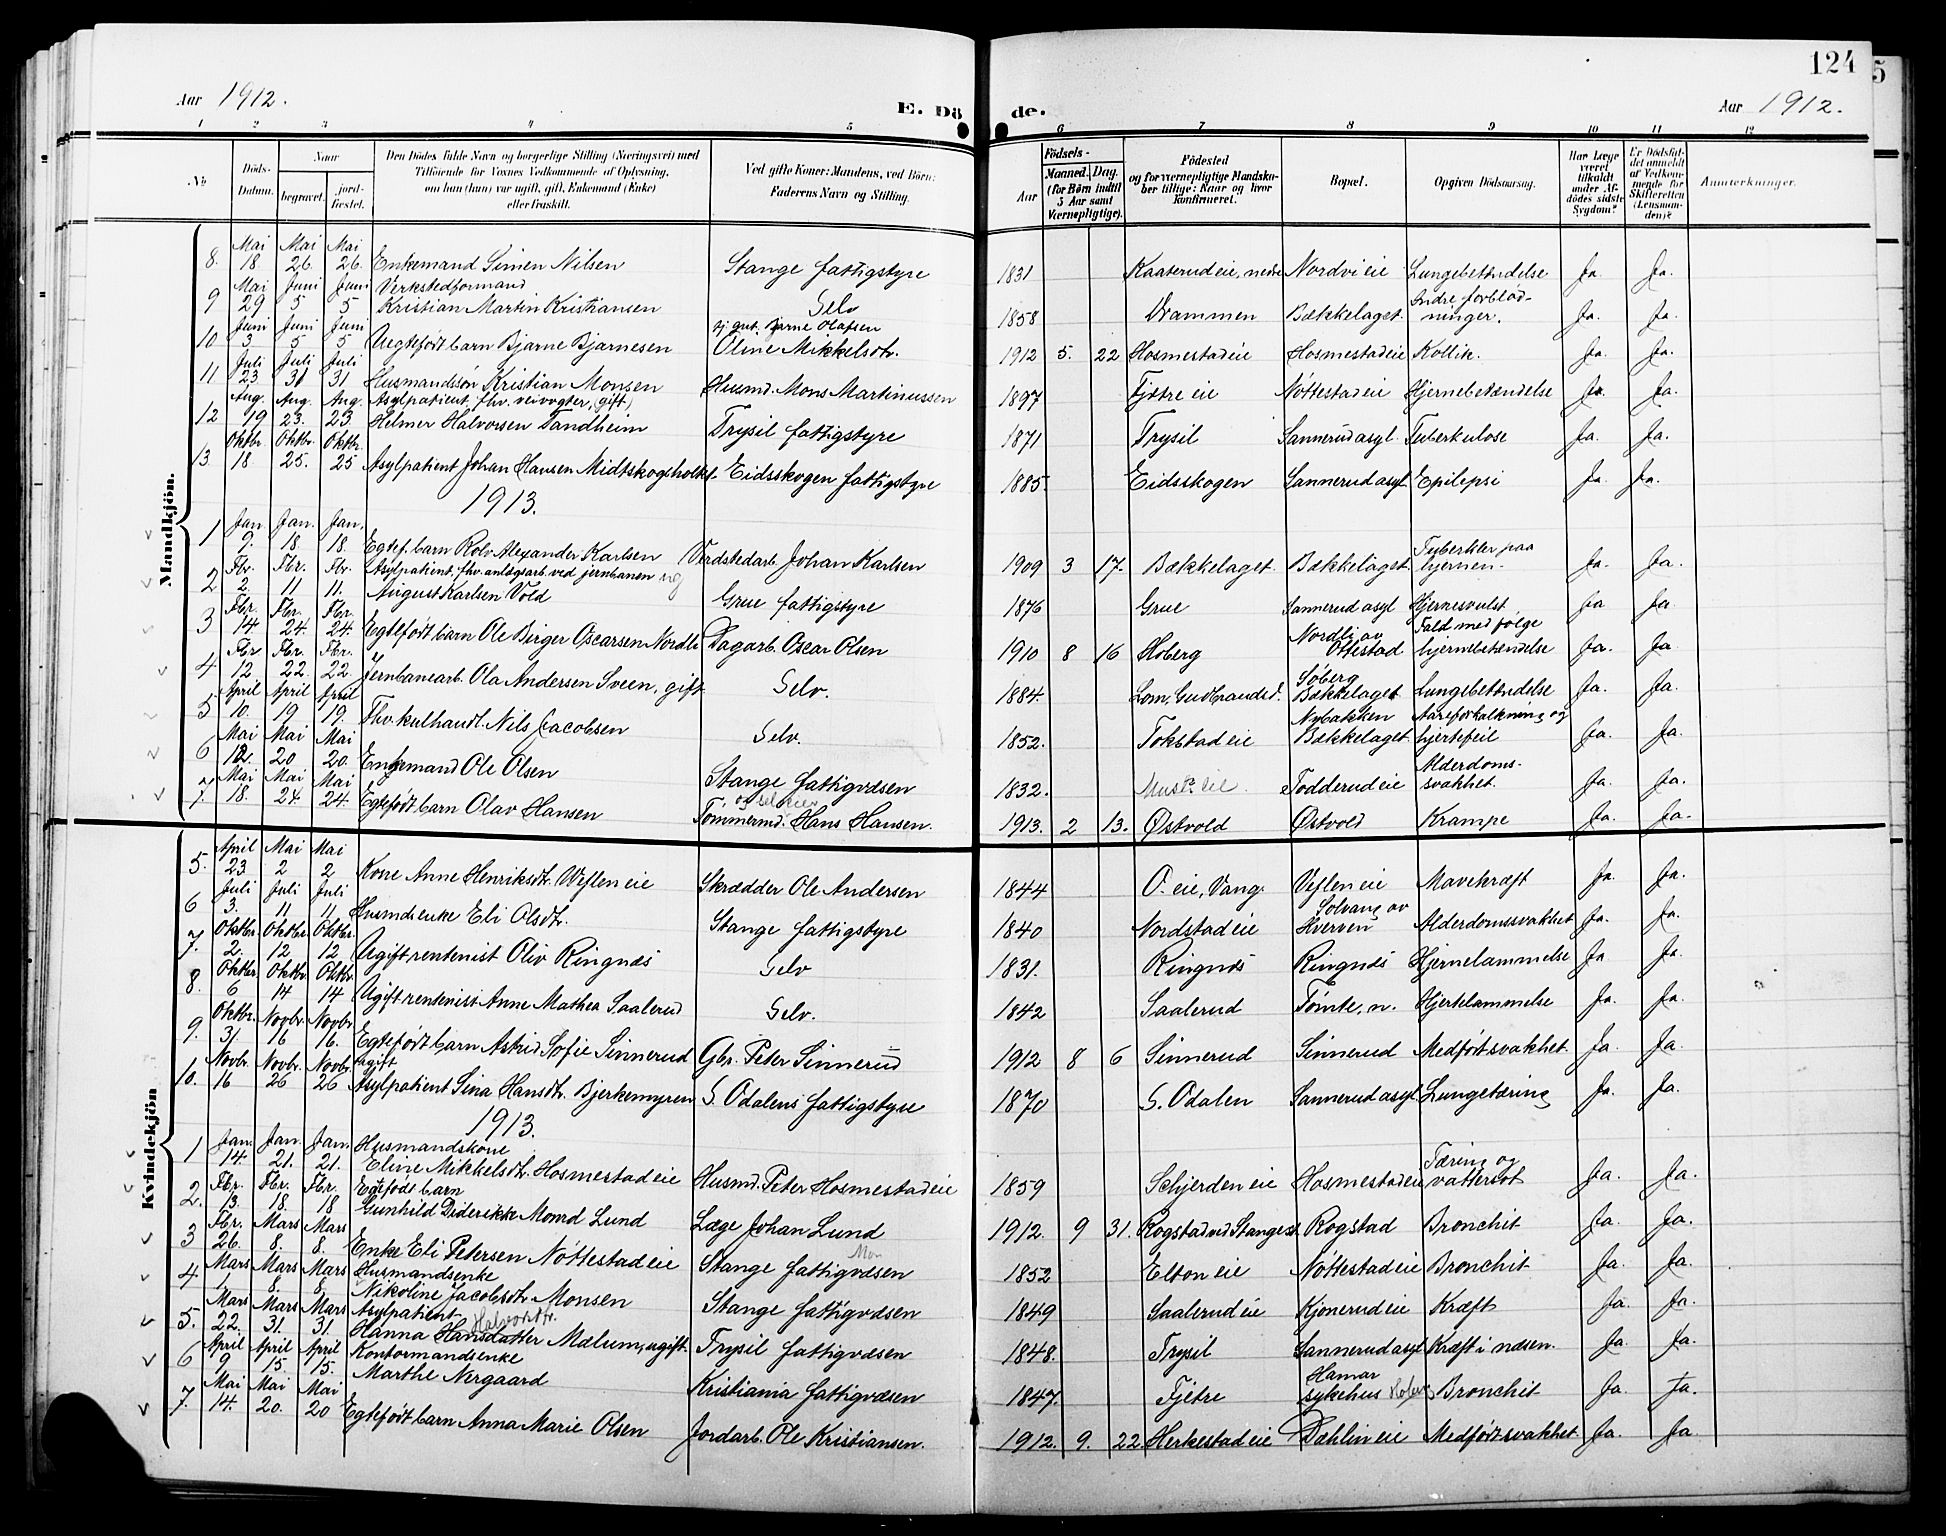 124
5
Aar 1912.
E. Dö de.
Aar 1912.
1 2 3 4 5 6 7 8 9 10 11 12
No.
Döds-Datum.
Naar
begravet.
jord-fæstet.
Den Dödes fulde Navn og borgerlige Stilling (Næringsvei) med
Tilföiende for Voxnes Vedkommende af Oplysning,
om han (hun) var ugift, gift, Enkemand (Enke)
eller fraskilt.
Ved gifte Koner: Mandens, ved Börn:
Faderens Navn og Stilling.
Födsels-
Aar
Maaned. Dag.
(for Börn indtil
5 Aar samt
Værnepligtige).
Födested
og for værnepligtige Mandska-
ber tillige: Naar og hvor
konfirmeret.
Bopæl.
Opgiven Dödsaarsag.
Har Læge
været
tilkaldt
under Af-
dödes sidste
Sygdom?
Er Dödsfal-
det anmeldt
af Vedkom-
mende for
Skifteretten
(Lensman-
den)?
Anmærkninger.
Mandkjön.
8. Mai 18. Mai 26. Mai 26. Enkemand Simen Nilsen Stange fattigstyre 1831 Kaaterudeie, nedre Nordvi eie Lungebetændelse Ja. Ja.
9 Mai 29 Juni 5 Juni 5 Verkstedformand
Kristian Martin Kristiansen Selv 1858 Drammen Bækkelaget. Indre forblød-
ninger. Ja. Ja.
10 Juni 3 Juni 5 Juni 5 Uegtefødt barn Bjarne Bjarnesen gut. Bjarne Olafsen
Oline Mikkelsdtr. 1912 5. 22 Hosmestadeie Hosmestadeie Kollik. Ja. Ja.
11 Juli 23 Juli 31 Juli 31 Husmandssøn Kristian Monsen Husmd. Mons Martinussen 1897 Fjetre eie Nøttestadeie Hjernebetændelse Ja. Ja.
12 Aug. 19 Aug. 23. Aug. 23. Asylpatient, fhv. veivogter, (gift)
Helmer Halvorsen Tandheim Trysil fattigstyre 1871 Trysil Sannerudasyl Tuberkulose Ja. Ja.
13. Oktbr. 18. Oktbr. 25. Oktbr. 25 Asylpatient Johan Hansen Midtskogsholtet Eidsskogen fattigstyre 1885. Eidsskogen Sannerudasyl Epilepsi Ja. Ja.
1913.
1 Jan. 9. Jan. 18. Jan. 18. Egtef. barn Rolv Alexander Karlsen Verkstedarb. Johan Karlsen 1909 3 17. Bækkelaget. Bækkelaget Tuberkler paa
hjernen. Ja. Ja.
2 Fbr. 2. Fbr. 11 Fbr. 11. Asylpatient, fhv. anlægsarb. ved jernbanen ug
August Karlsen Vold Grue fattigstyre 1876 Grue Sannerud asyl Hjernesvulst Ja Ja
3 Fbr. 14. Fbr. 24. Fbr. 24. Egtefødt barn Ole Birger Oscarsen Nordli Dagarb. Oscar Olsen 1910 8 16 Hoberg Nordli av
Ottestad Fald med følge
hjernebetændelse Ja. Ja.
4 Fbr. 12 Fbr. 22. Fbr. 22. Jernbanearb. Ola Andersen Sveen, gift Selv. 1884. Lom, Gudbrandsd. Søberg
Bækkelaget Lungebetændelse Ja. Ja.
5 April 10. April 19 April 19. Fhv. kulhandl. Nils Jacobsen Selv. 1852. Tokstadeie Nybakken
Bækkelaget. Aareforkalkning og
hjertefeil Ja. Ja.
6 Mai 12. Mai 20 Mai 20. Enkemand Ole Olsen Stange fattigvæsen 1832. Todderudeie Alderdoms-
svakhet. Ja. Ja.
7. Mai 18. Mai 24. Mai 24. Egtefødt barn Olav Hansen og selveier
Tømmermd. Hans Hansen. 1913. 2 13. Østvold Østvold Krampe Ja. Ja.
Kvindekjön
5. April 23 Mai 2 Mai 2 Kone Anne Henriksdtr. Veflen eie Skrædder Ole Andersen 1844 O. eie, Vang. Veflen eie Mavekræft Ja. Ja.
6 Juli 3. Juli 11 Juli 11. Husmdsenke Eli Olsdtr. Stange fattigstyre 1840 Nordstadeie Solvang av
Hverven Alderdomssvakhet Ja. Ja.
7. Oktbr. 2. Oktbr. 12 Oktbr. 12 Ugift rentenist Oliv Ringnæs Selv 1831. Ringnæs Ringnæs Hjernelammelse Ja Ja.
8. Oktbr. 6 Oktbr. 14 Oktbr. 14 Ugift rentenist Anne Mathea Saalerud Selv. 1842 Saalerud Tømte, n. Hjertelammelse Ja. Ja.
9. Oktbr. 31. Novbr. 16 Novbr. 16. Egtefødt barn Astrid Sofie Sinnerud Gbr. Peter Sinnerud 1912 8 6 Sinnerud Sinnerud Medfødt svakhet. Ja. Ja.
10. Novbr. 16 Novbr. 26 Novbr. 26 ugift
Asylpatient Sina Hansdtr. Bjerkemyren S. Odalens fattigstyre 1870 S. Odalen Sannerudasyl Lungetæring Ja. Ja.
1913.
1 Jan. 14. Jan. 21. Jan. 21. Husmandskone
Eline Mikkelsdtr. Hosmestadeie Husmd. Peter Hosmestadeie 1859 Schjerden eie Hosmestadeie Tæring og
vattersot Ja. Ja.
2. Fbr. 13. Fbr. 18. Fbr. 18 Egtefødt barn
Gunhild Diderikke Monrd Lund Læge Johan Lund 1912. 9 31. Rogstad ved Stangest. Rogstad Bronchit Ja. Ja.
3 Fbr. 26. Mars 8. Mars 8. Enke Eli Petersen Nøttestadeie Stange fattigvæsen 1852 Elton eie Nøttestadeie Bronchit Ja. Ja.
4 Mars 1. Mars 8. Mars 8. Husmandsenke
Nikoline Jacobsdtr. Monsen Stange fattigvæsen 1849 Saalerud eie Kjonerud eie Kræft Ja. Ja.
5. Mars 22. Mars 31. Mars 31. Asylpatient Halvorsdtr.
Hanna Hansdatter Mælum, ugift. Trysil fattigvæsen 1848. Trysil Sannerudasyl Kræft i næsen. Ja. Ja.
6 April 9 April 15 April 15. Kontormandsenke
Marthe Nergaard Kristiania fattigvæsen 1847. Fjetre Hamar
sykehus Bronchit Ja. Ja.
7. Mai 14. Mai 20. Mai 20 Egtefødt barn Anna Marie Olsen Jordarb. Ole Kristiansen. 1912. 9. 22 Herkestad eie Dæhlin eie Medfødt svakhet Ja. Ja.